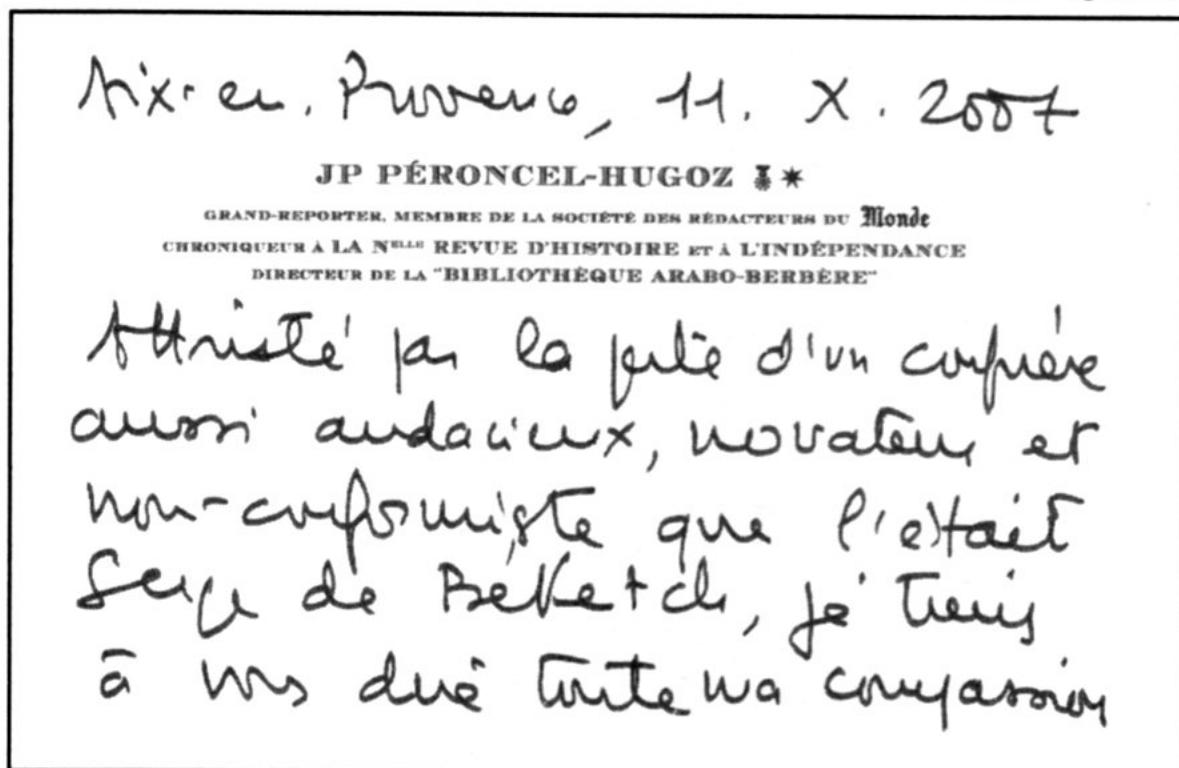 Aix-en-Provence, 11. X. 2007
JP PÉRONCEL-HUGOZ
GRAND-REPORTER, MEMBRE DE LA SOCIÉTÉ DES RÉDACTEURS DU Monde
CHRONIQUEUR À LA NELLE REVUE D'HISTOIRE ET À L'INDÉPENDANCE
DIRECTEUR DE LA "BIBLIOTHÈQUE ARABO-BERBÈRE"
Attristé par la perte d'un confrère
aussi audacieux, novateur et
non-conformiste que l'était
Serge de Beketch, je tiens
à vous dire toute ma compassion